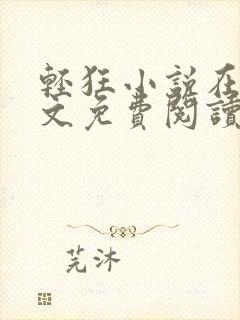 輕狂小說在
文免費閱讀
芫沐